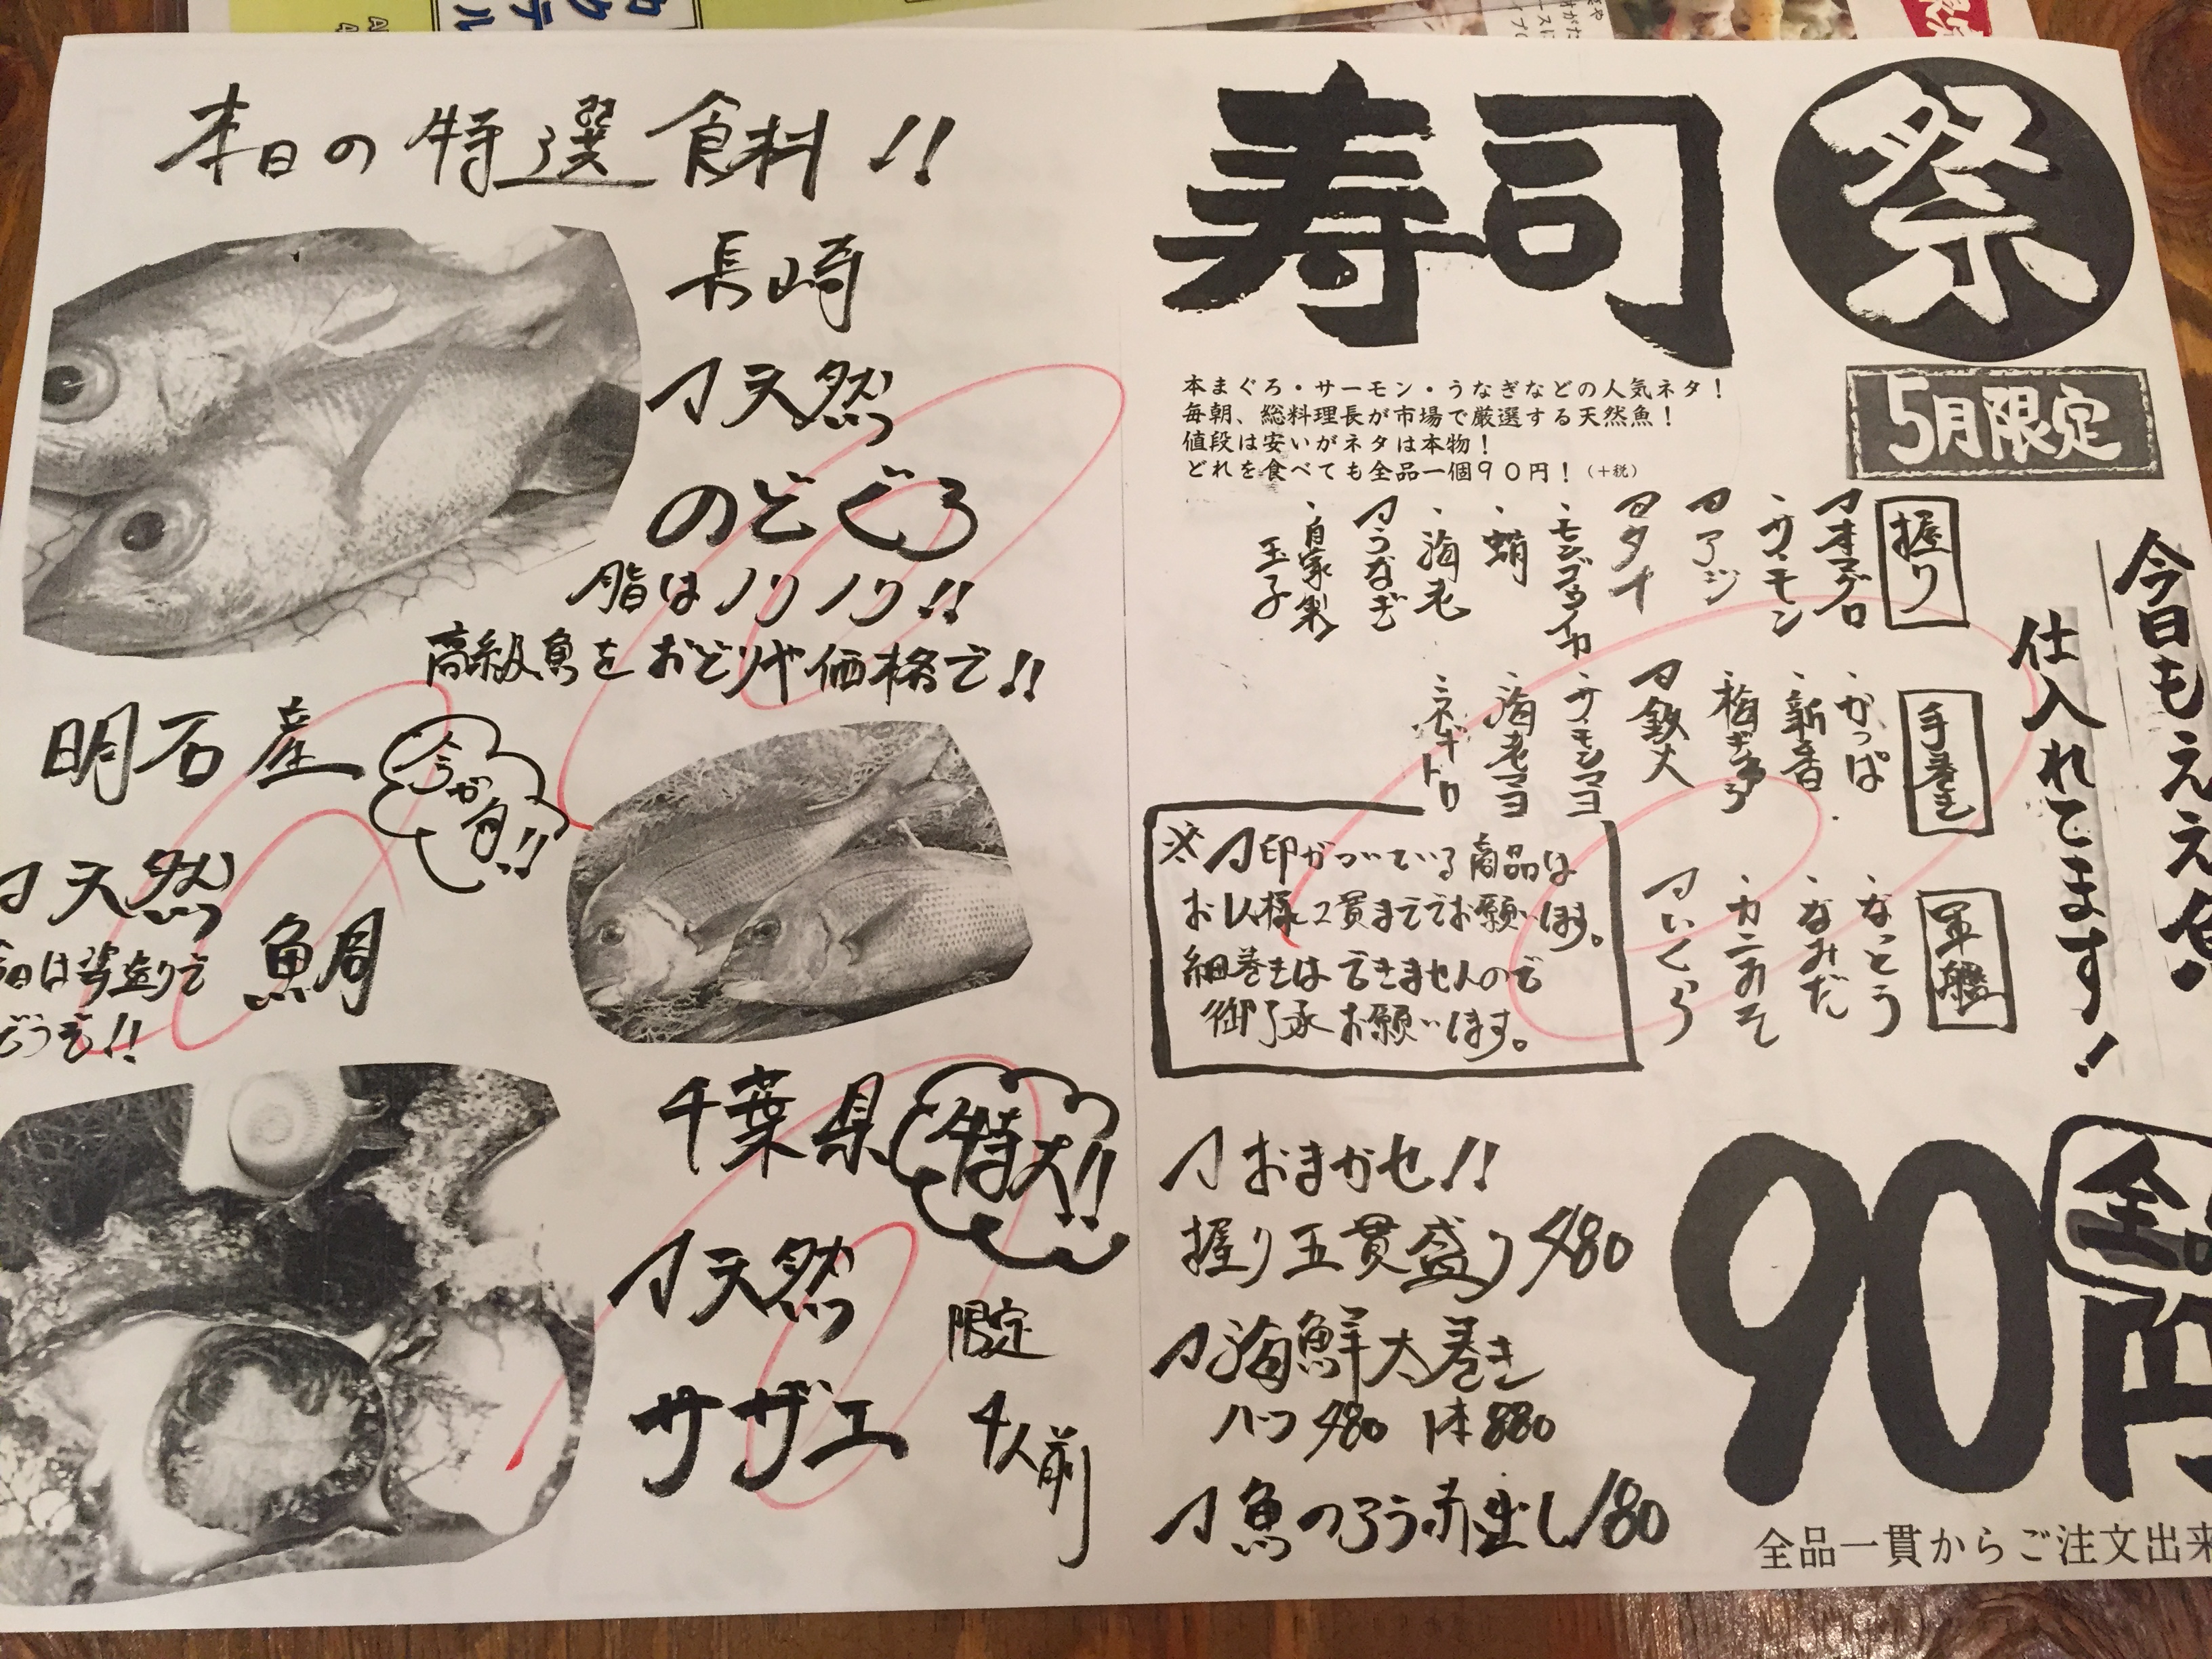 本日の特選食料!!
長崎
天然
のどぐろ
脂はノリノリ!!
高級魚をおどりや価格で!!
明石産
今が旬!!
天然
鯛
今日は姿造りで
どうぞ!!
千葉県
特大!!
天然
サザエ
限定
4人前
寿司
祭
5月限定
本まぐろ・サーモン・うなぎなどの人気ネタ!
毎朝、総料理長が市場で厳選する天然魚!
値段は安いがネタは本物!
どれを食べても全品一個90円!(+税)
今日もええ魚
仕入れてます!
握り
本マグロ
・サーモン
アジ
タイ
・モンゴウイカ
・蛸
・海老
うなぎ
・自家製
玉子
手巻き
・かっぱ
・新香
・梅きゅう
鉄火
・サーモンマヨ
・海老マヨ
・ネギトロ
軍艦
・なっとう
・なみだ
・カニみそ
いくら
※印がついている商品は
お1人様2貫まででお願いします。
細巻きはできませんので
御了承お願いします。
おまかせ!!
握り五貫盛り480
海鮮太巻き
ハーフ480 1本880
魚のあら赤出し180
全品
90円
全品一貫からご注文出来